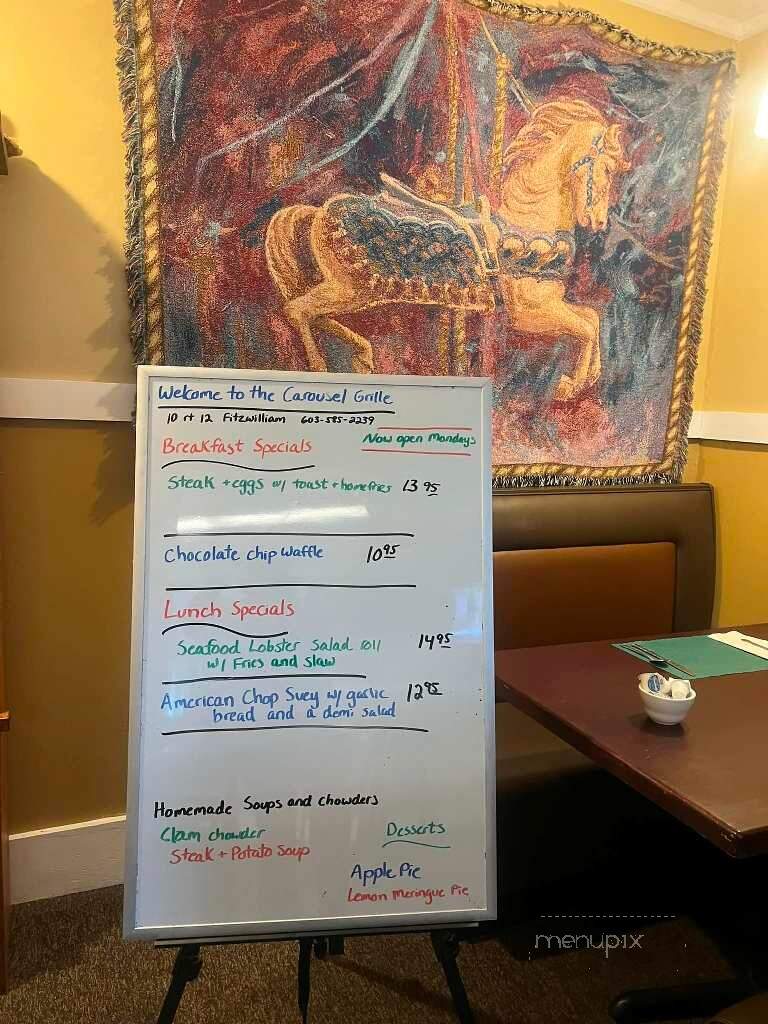 Welcome to the Carousel Grille
10 rt 12 Fitzwilliam 603-585-2239
Now open Mondays
Breakfast Specials
Steak + eggs w/ toast + homefries 13 95
Chocolate chip waffle 10 95
Lunch Specials
Seafood Lobster Salad roll 14 95
w/ Fries and Slaw
American Chop Suey w/ garlic 12 95
bread and a demi salad
Homemade Soups and chowders
Clam chowder
Steak + Potato Soup
Desserts
Apple Pie
Lemon Meringue Pie
menupix